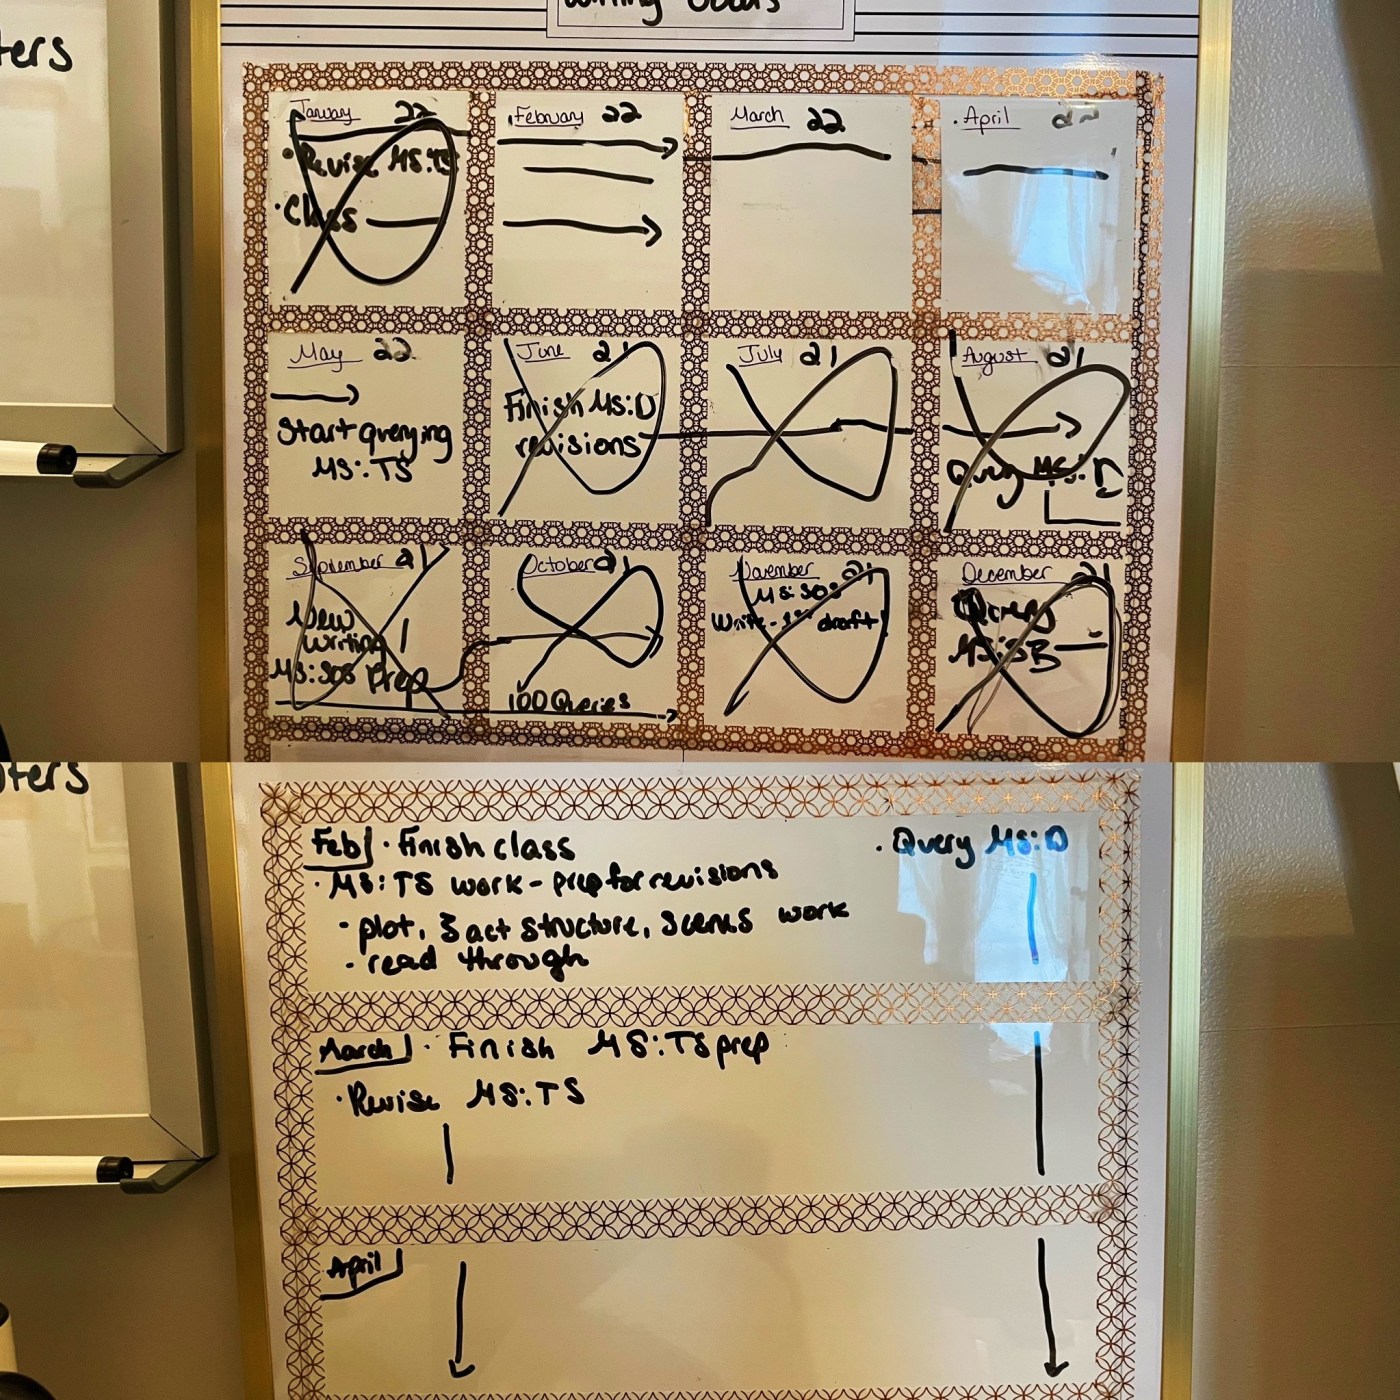 ters
Writing Goals
January 22
• Revise MS:TS
• Class
February 22
March 22
• April 22
May 22
Start querying
MS:TS
June 21
Finish MS:D
revisions
July 21
August 21
Query MS:D
September 21
New
writing
MS:SOS Prep
October 21
100 Queries
November 21
MS:SOS
Write - 1st draft
December 21
Query
MS:SB
ters
Feb • Finish class
• Query MS:D
• MS:TS work - prep for revisions
• plot, 3 act structure, scenes work
• read through
March • Finish MS:TS prep
• Revise MS:TS
April